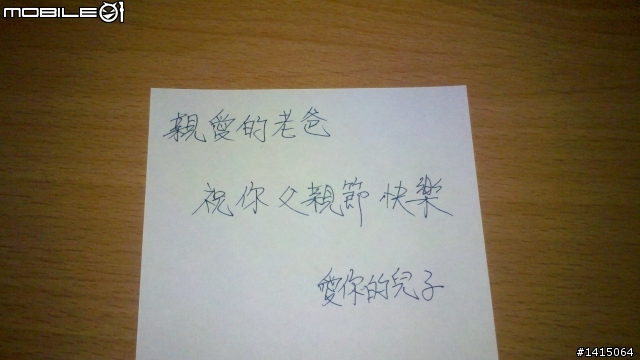 MOBILE01
親愛的老爸
祝你父親節快樂
愛你的兒子
#1415064